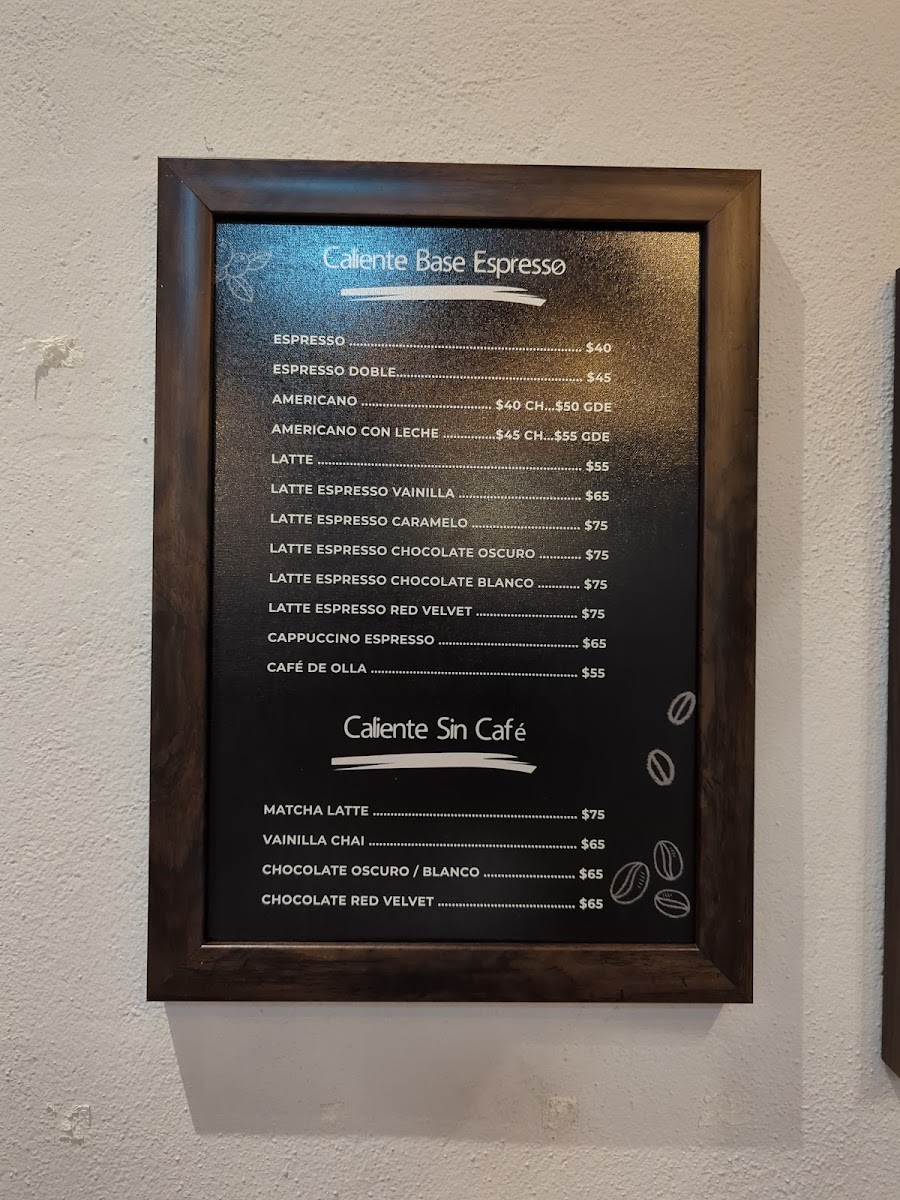 Caliente Base Espresso
ESPRESSO ........................................................ $40
ESPRESSO DOBLE............................................. $45
AMERICANO ................................ $40 CH...$50 GDE
AMERICANO CON LECHE .............$45 CH...$55 GDE
LATTE ................................................................ $55
LATTE ESPRESSO VAINILLA .............................. $65
LATTE ESPRESSO CARAMELO ........................... $75
LATTE ESPRESSO CHOCOLATE OSCURO ........... $75
LATTE ESPRESSO CHOCOLATE BLANCO ........... $75
LATTE ESPRESSO RED VELVET ......................... $75
CAPPUCCINO ESPRESSO .................................. $65
CAFÉ DE OLLA .................................................. $55
Caliente Sin Café
MATCHA LATTE .................................................. $75
VAINILLA CHAI ................................................... $65
CHOCOLATE OSCURO / BLANCO ....................... $65
CHOCOLATE RED VELVET .................................. $65